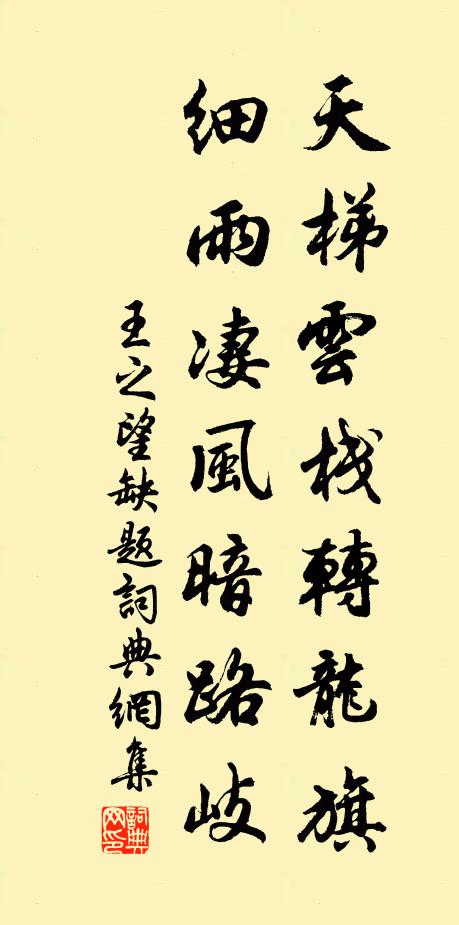 天梯雲栈轉龍旗
細雨凄風暗路歧
王之望缺题詞典網集
詞典网印